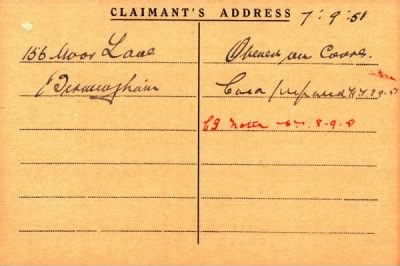 CLAIMANT'S ADDRESS 7.9.51
156 Moor Lane
Birmingham
Opened on Corres.
Card prepared